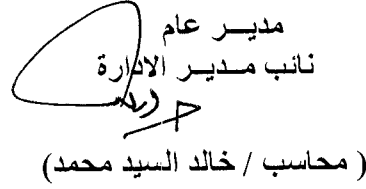 مديـــر عام
نائب مـــدير الادارة
( محاسب / خالد السيد محمد)